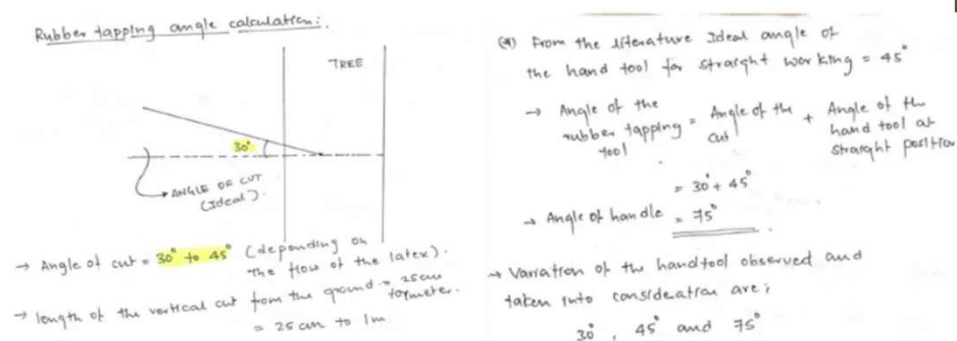 Rubber tapping angle calculation:.
TREE
30°
ANGLE OF CUT
(Ideal).
→ Angle of cut = 30° to 45° (depending on
the flow of the latex).
→ length of the vertical cut from the ground = 25cm
= 25 cm to 1m
From the literature Ideal angle of
the hand tool for straight working = 45°
→ Angle of the rubber tapping tool = Angle of the cut + Angle of the hand tool at straight position
= 30° + 45°
→ Angle of handle = 75°
→ Variation of the handtool observed and
taken into consideration are;
30°, 45° and 75°